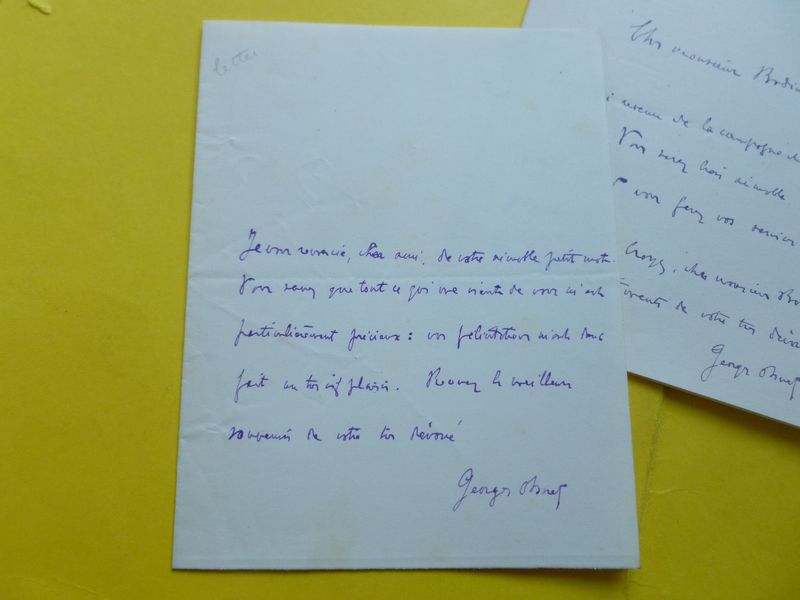 letter
Je vous remercie, cher ami, de votre aimable petit mot.
Vous savez que tout ce qui me vient de vous m'est
particulièrement précieux : vos félicitations m'ont donc
fait un très vif plaisir. Recevez le meilleur
souvenir de votre très dévoué
Georges Ohnet
Cher monsieur Bodin
revenu de la campagne
Vous serez bien aimable
vous ferez vos
Croyez, cher monsieur
de votre très
Georges Ohnet